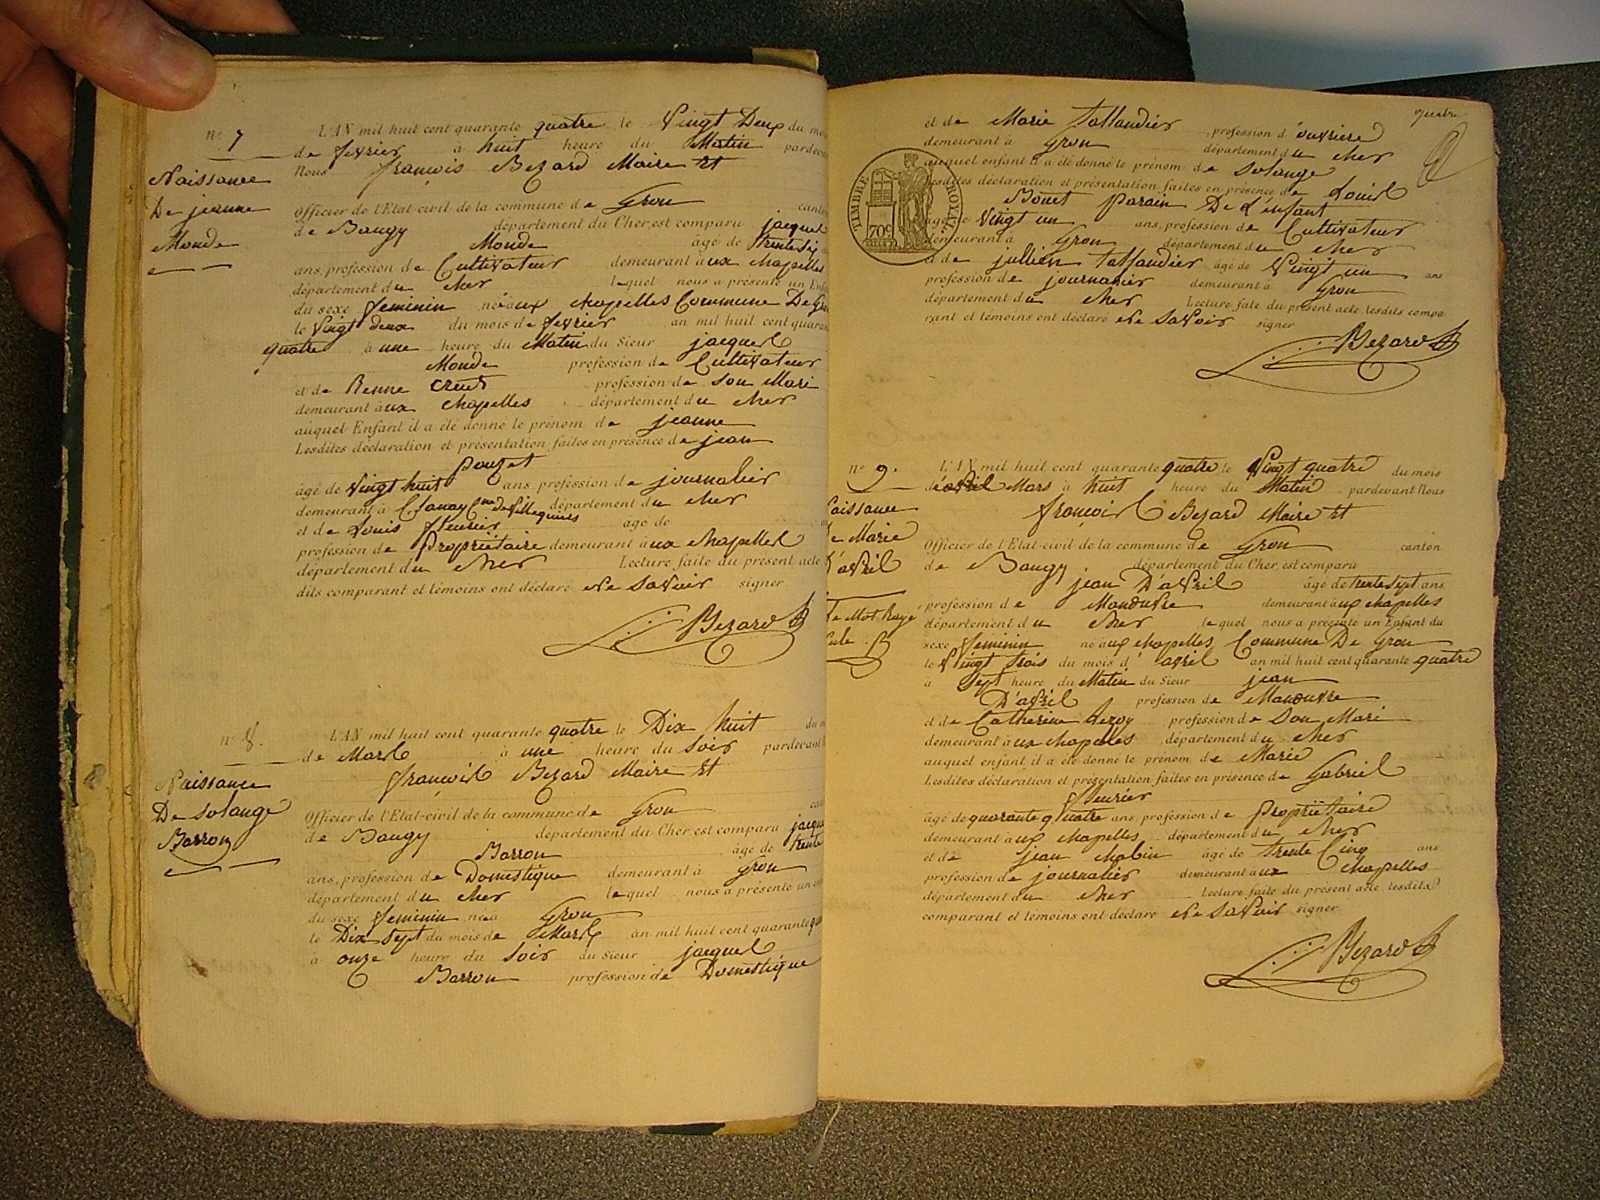 n° 7
Naissance
De jeanne
Monde
L'AN mil huit cent quarante quatre le Vingt Deux du
de fevrier à huit heure du Matin pardevant
Nous françois Bezard Maire Et
Officier de l'Etat-civil de la commune de Gron
de Baugy département du Cher, est comparu jacques
Monde âgé de trente six
ans, profession de Cultivateur demeurant aux chapelles
département du cher lequel nous a présenté un
du sexe feminin né aux chapelles Commune De
le Vingt deux du mois de fevrier an mil huit cent
quatre à une heure du Matin du Sieur jacques
Monde profession de Cultivateur
et de profession de son Mari
demeurant aux chapelles département du cher
auquel Enfant il a été donné le prénom de jeanne
Lesdites déclaration et présentation faites en présence de jean
âgé de Vingt huit ans, profession de journalier
demeurant à département du cher
et de Louis fleurier âgé de
profession de Propriétaire demeurant aux chapelles
département du cher Lecture faite du présent acte
dits comparant et témoins ont déclaré Ne saVoir signer
Bezard
n° 8.
Naissance
De solange
Barron
L'AN mil huit cent quarante quatre le Dix huit
de Mars à une heure du soir pardevant
françois Bezard Maire Et
Officier de l'Etat-civil de la commune de Gron
de Baugy département du Cher, est comparu
Barron âgé de trente
ans, profession de Domestique demeurant à Gron
département du cher lequel nous a présenté un
du sexe feminin né à Gron
le Dix sept du mois de Mars an mil huit cent quarante
à onze heure du soir du Sieur jacques
Barron profession de Domestique
quatre
et de Marie tallandier profession d'ouvriere
demeurant à Gron département du cher
auquel enfant il a été donné le prénom de solange
Lesdites déclaration et présentation faites en présence de Louis
Bouet Parain De L'enfant
âgé de Vingt un ans, profession de Cultivateur
demeurant à Gron département du cher
et de jullien tallandier âgé de Vingt un ans
profession de journalier demeurant à Gron
département du cher Lecture faite du présent acte, lesdits compa-
rant et témoins ont déclaré Ne saVoir signer
Bezard
TIMBRE ROYAL
70c
n° 9.
Naissance
de Marie
d'aVril
le Mot Rayé
nule. B
L'AN mil huit cent quarante quatre le Vingt quatre du mois
d'avril Mars à huit heure du Matin pardevant Nous
françois Bezard Maire Et
Officier de l'Etat-civil de la commune de Gron canton
de Baugy département du Cher, est comparu
jean D'aVril âgé de trente sept ans
profession de Manouvre demeurant aux chapelles
département du cher lequel nous a présenté un Enfant du
sexe feminin né aux chapelles Commune De Gron
le Vingt trois du mois d'avril an mil huit cent quarante quatre
à sept heure du Matin du Sieur jean
D'aVril profession de Manouvre
et de Catherine profession de Son Mari
demeurant aux chapelles département du cher
auquel enfant il a été donné le prénom de Marie
Lesdites déclaration et présentation faites en présence de Gabriel
fleurier
âgé de quarante quatre ans, profession de Propriétaire
demeurant aux chapelles département du cher
et de jean Mabin âgé de trente Cinq ans
profession de journalier demeurant aux chapelles
département du cher Lecture faite du présent acte, lesdits
comparant et témoins ont déclaré Ne saVoir signer
Bezard